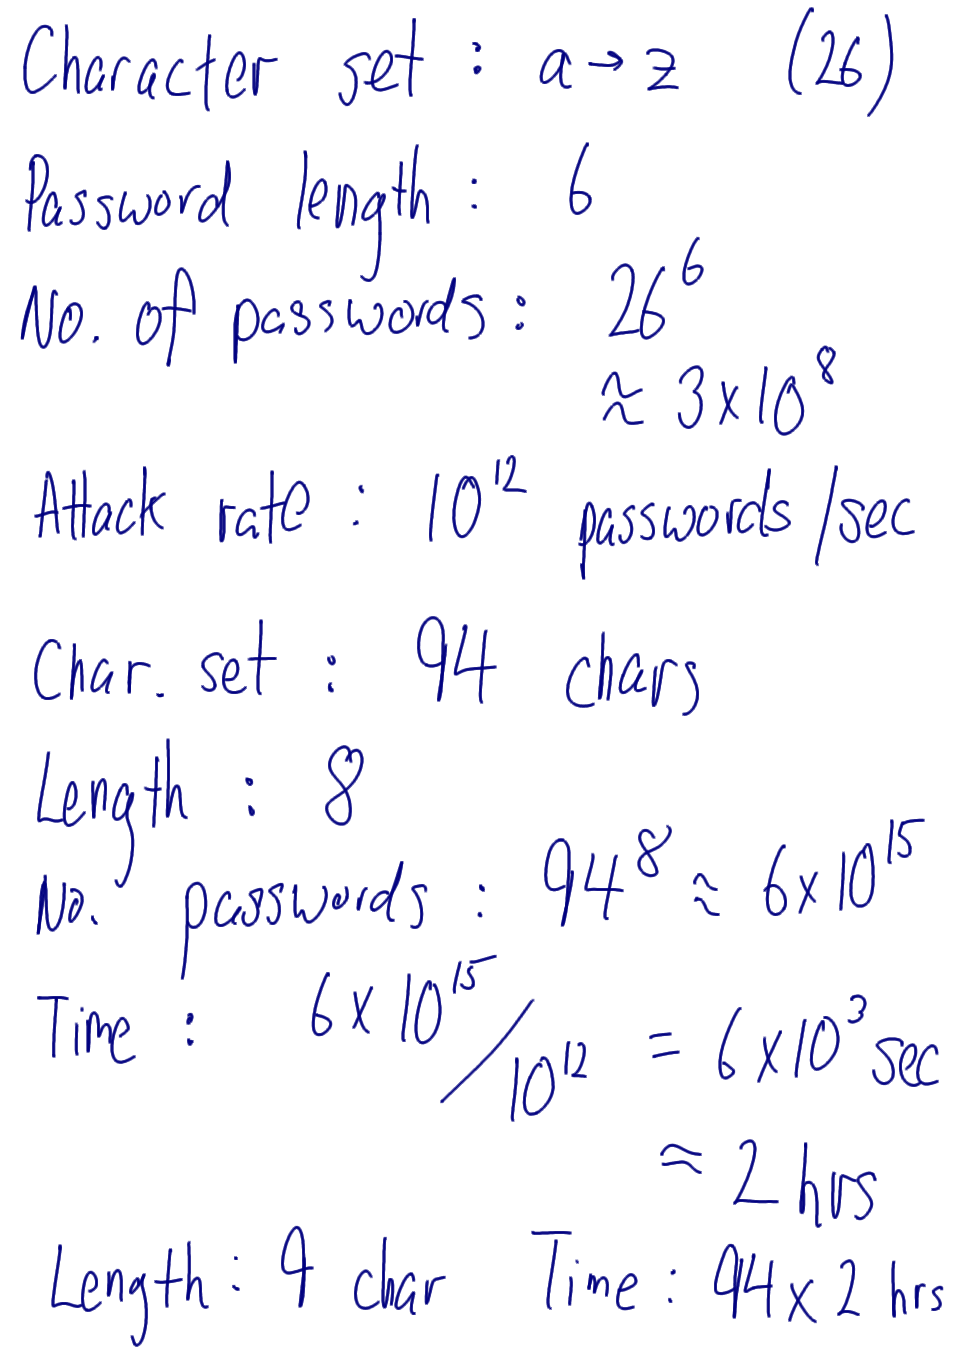 Character set : a → z (26)
Password length : 6
No. of passwords : 26⁶
≈ 3 x 10⁸
Attack rate : 10¹² passwords / sec
Char. set : 94 chars
Length : 8
No. passwords : 94⁸ ≈ 6 x 10¹⁵
Time : 6 x 10¹⁵ / 10¹² = 6 x 10³ sec
≈ 2 hrs
Length : 9 char Time : 94 x 2 hrs